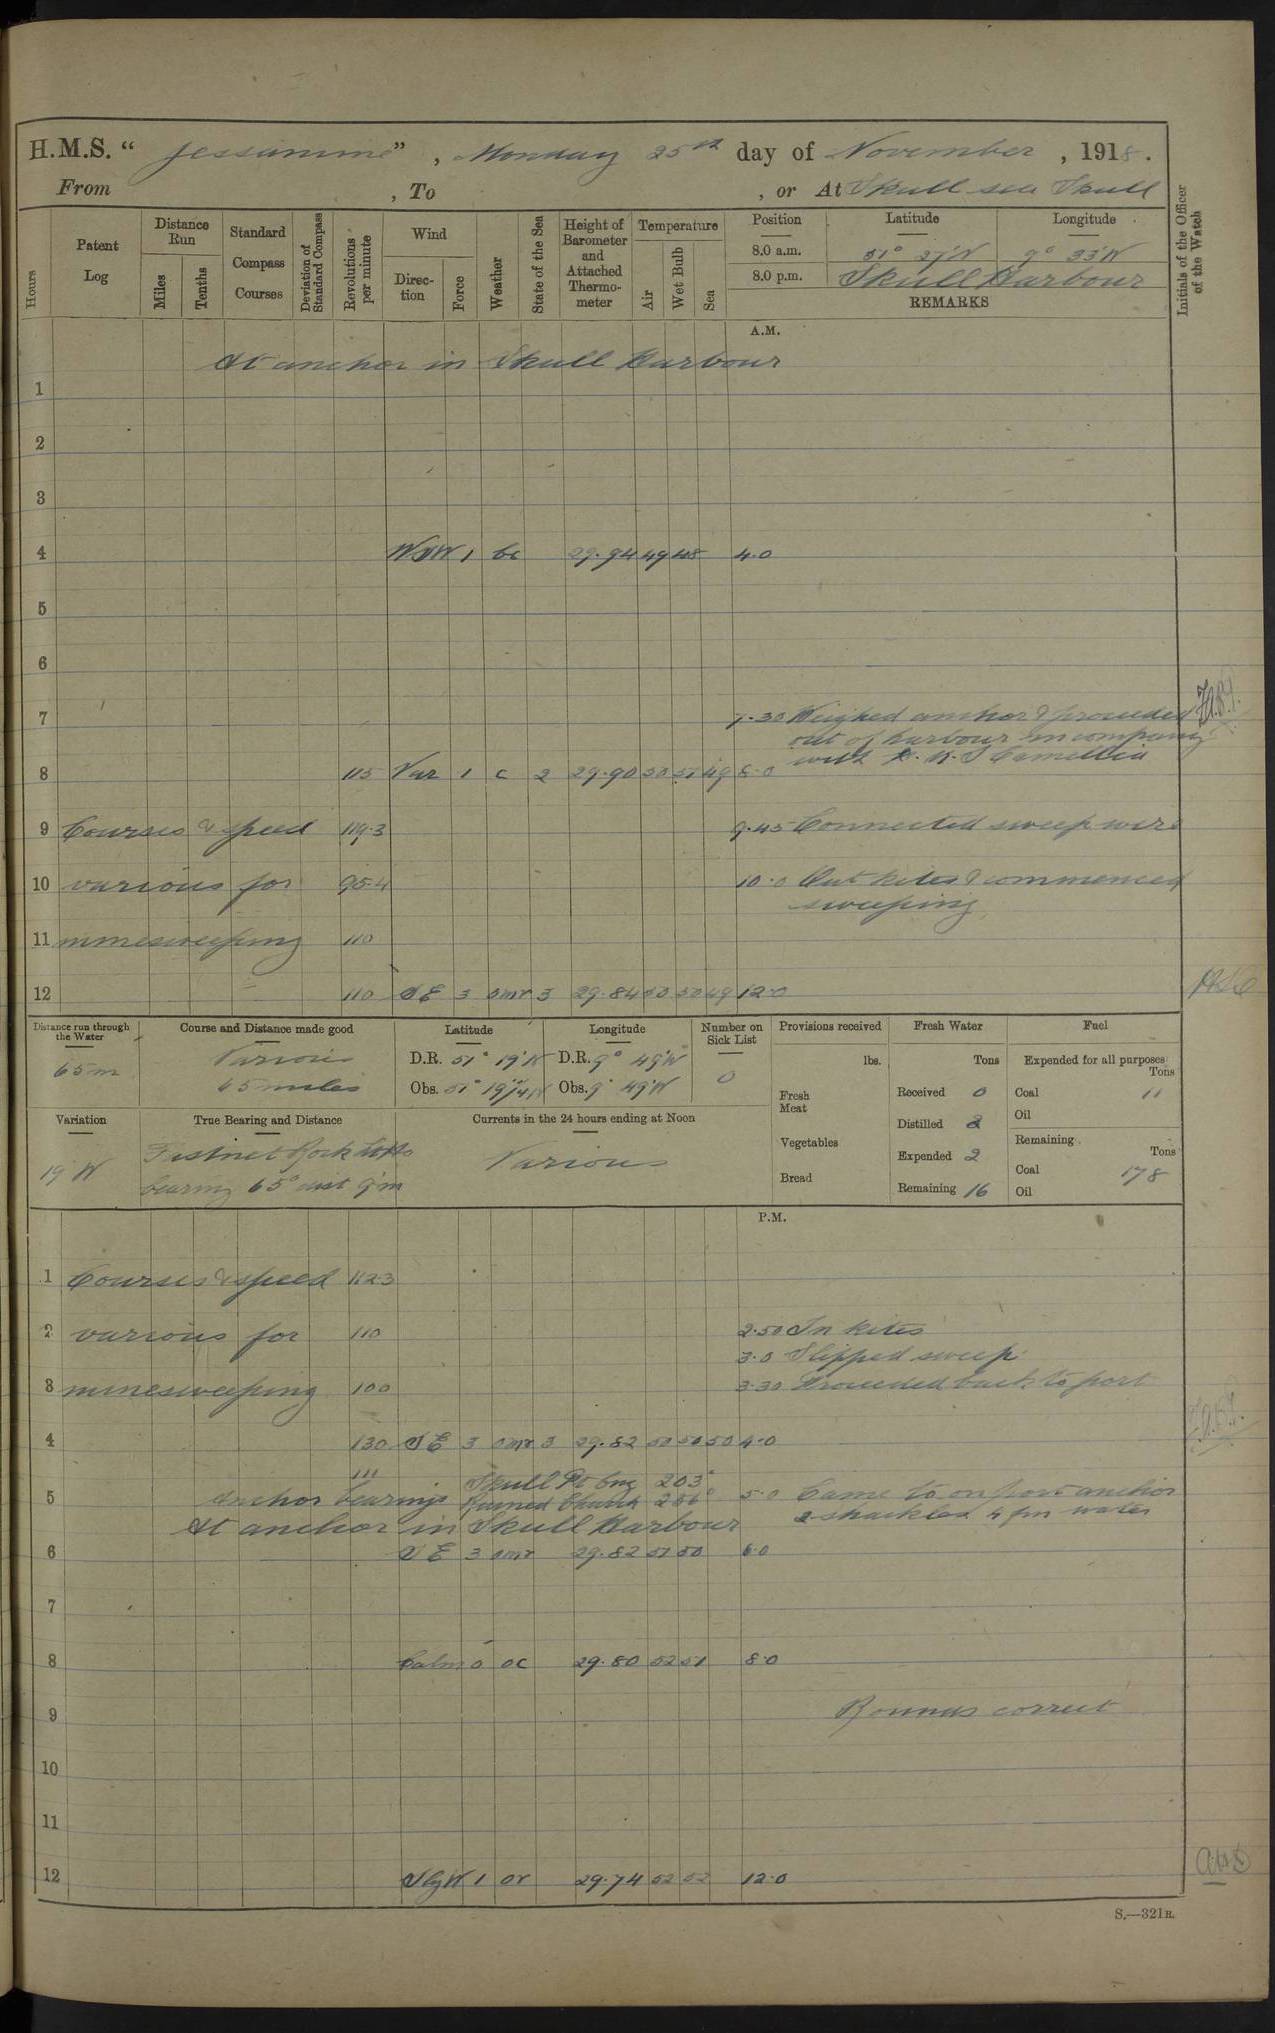 H.M.S. “ Jessamine ” , Monday 25th day of November , 1918.
From , To , or At Skull sea Skull
Hours
Patent Log
Distance Run
Miles
Tenths
Standard Compass Courses
Deviation of Standard Compass
Revolutions per minute
Wind
Direction
Force
Weather
State of the Sea
Height of Barometer and Attached Thermometer
Temperature
Air
Wet Bulb
Sea
Position Latitude Longitude
8.0 a.m. 51° 27'N 9° 33'W
8.0 p.m. Skull Harbour
REMARKS
Initials of the Officer of the Watch
A.M.
At anchor in Skull Harbour
1
2
3
4 WSW 1 bc 29.94 49 48 4.0
5
6
7 7.30 Weighed anchor & proceeded
out of harbour in company
with H.M.S Camellia
8 115 Var 1 c 2 29.90 50 51 49 8.0
9 Courses & speed 119.3 9.45 Connected sweep wire
10 various for 95.4 10.0 Out kites & commenced
sweeping
11 minesweeping 110
12 110 SE 3 omr 3 29.84 50 50 49 12.0
Distance run through the Water
65m
Course and Distance made good
Various
65 miles
Latitude
D.R. 51° 19'N
Obs. 51° 19¼'N
Longitude
D.R. 9° 49'W
Obs. 9° 49'W
Number on Sick List
0
Provisions received
lbs.
Fresh Meat
Vegetables
Bread
Fresh Water
Tons
Received 0
Distilled 2
Expended 2
Remaining 16
Fuel
Expended for all purposes
Tons
Coal 11
Oil
Remaining
Tons
Coal 178
Oil
Variation
19°W
True Bearing and Distance
Fastnet Rock
bearing 65° dist 9'm
Currents in the 24 hours ending at Noon
Various
P.M.
1 Courses & speed 112.3
2 various for 110 2.50 In kites
3.0 Slipped sweep
3 minesweeping 100 3.30 Proceeded back to port
4 130 SE 3 omr 3 29.82 50 50 50 4.0
111 Skull Pt brg 203°
5 Anchor bearings Ruined Church 266° 5.0 Came to on port anchor
2 shackles 4 fm water
At anchor in Skull Harbour
6 SE 3 omr 29.82 51 50 6.0
7
8 Calm 0 oc 29.80 52 51 8.0
9 Rounds correct
10
11
12 SbyW 1 or 29.74 52 52 12.0
S.—321R.